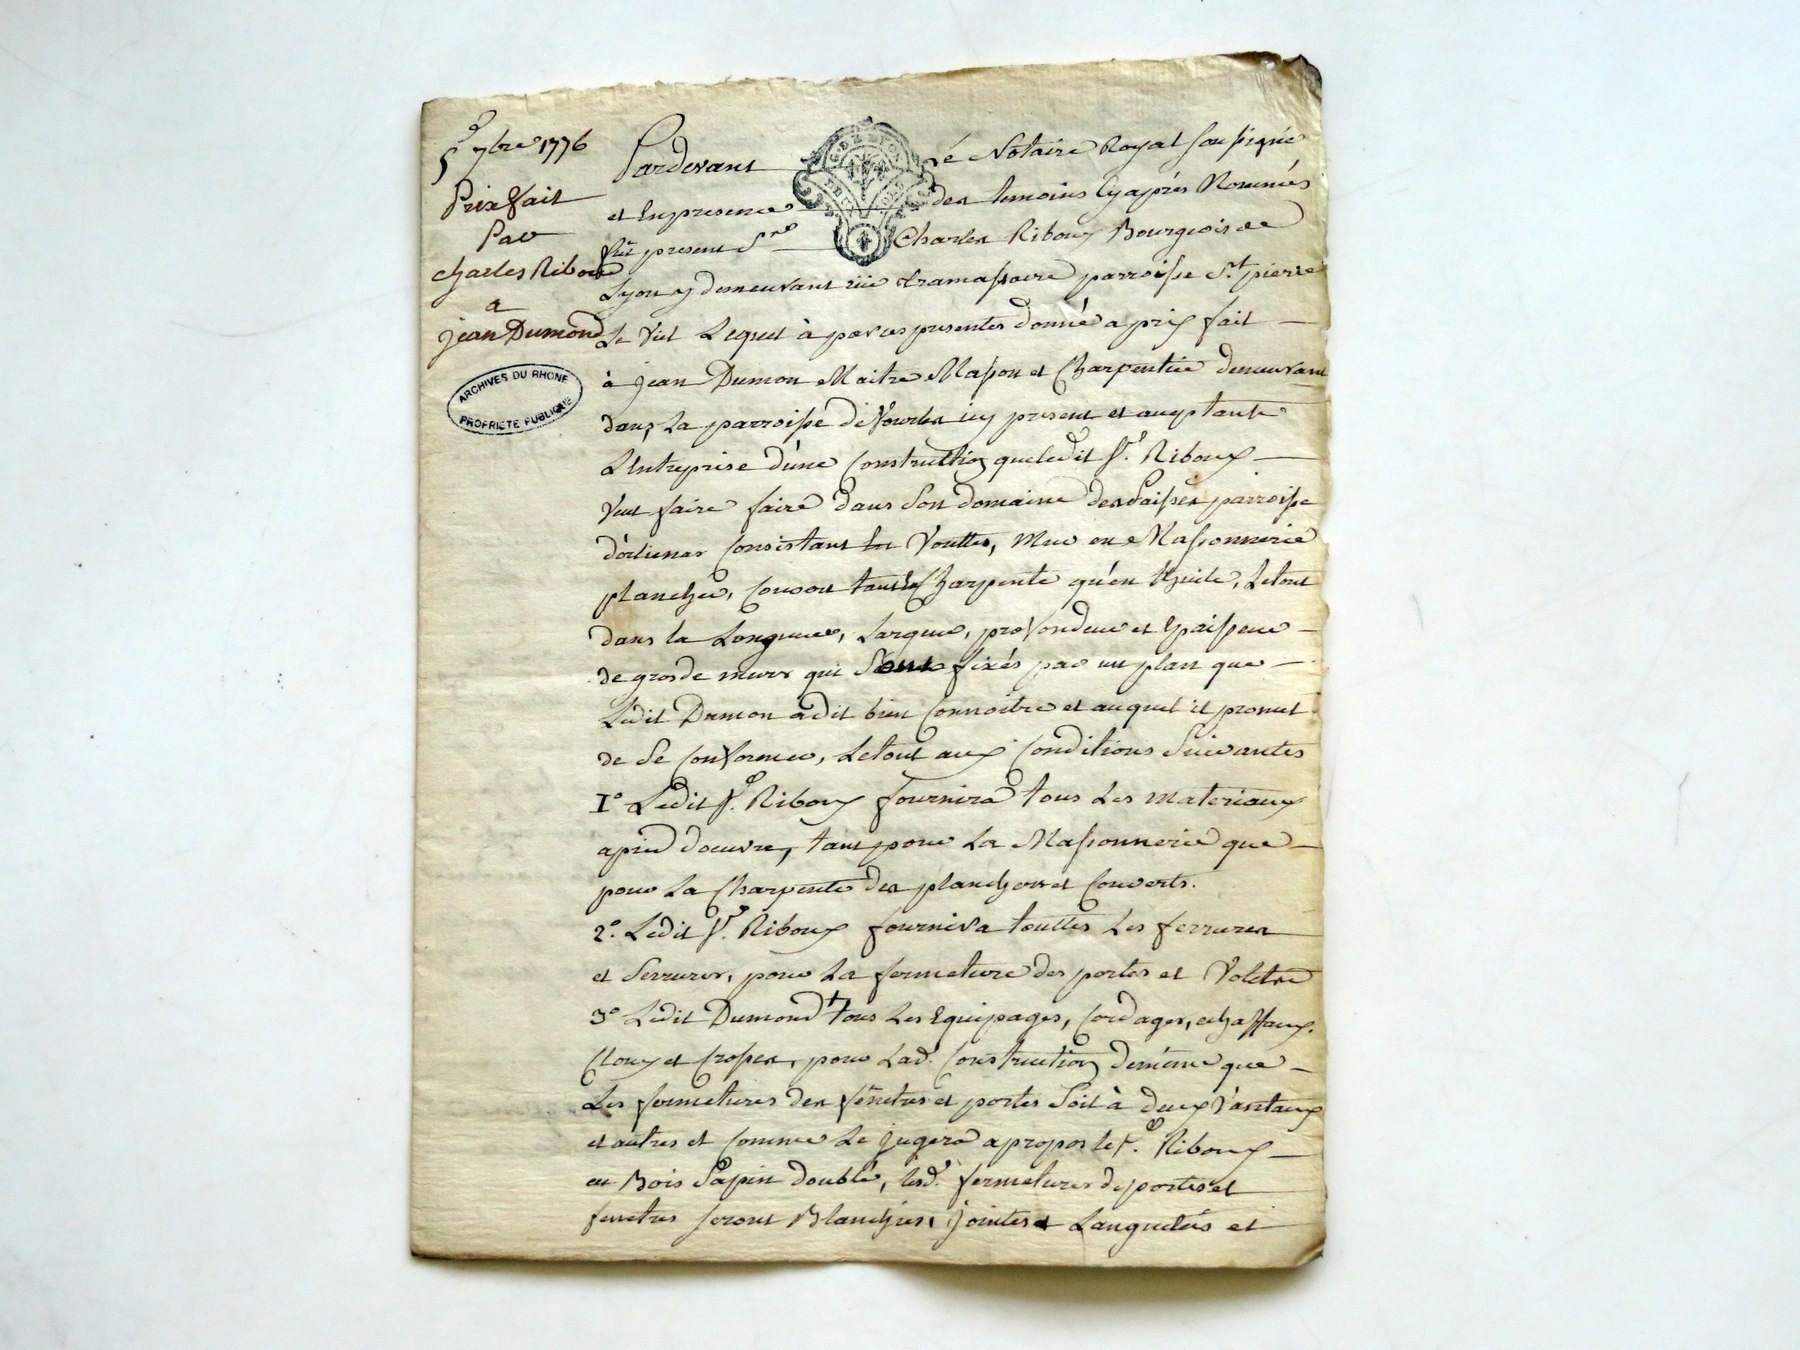 5 7bre 1776
Prixfait
Par
Charles Riboux
a
jean Dumond
ARCHIVES DU RHONE
PROPRIETE PUBLIQUE
G. DE LYON
Pardevant Le Notaire Royal soussigné
et En presence des temoins Cyaprès Nommés
fut present Sr Charles Riboux Bourgeois de
Lyon y demeurant rüe tramassaire parroisse St. pierre
Le Viel Lequel à par ces presentes donné a prix fait
à jean Dumon Maitre Masson et Charpentier demeurant
dans La parroisse de Vourles icy present et acceptant
L'Entreprise d'une Construction que ledit Sr. Riboux
Veut faire faire dans Son domaine des Saisses parroisse
d'orlienas Consistant en Vouttes, Mur en Massonnerie
plancher, Couvert tant en Charpente qu'en thuile, Le tout
dans la Longueur, Largeur, profondeur et Epaisseur
de gros de murs qui Sont fixés par un plan que
Ledit Dumon a dit bien Connoitre et auquel il promet
de Se Conformer, Le tout aux Conditions Suivantes
1° Ledit Sr. Riboux fournira tous Les materiaux
a pied d'oeuvre, tant pour La Massonnerie que
pour La Charpente des planchers et Couverts.
2°. Ledit Sr. Riboux fournira touttes Les ferrures
et Serrures, pour La fermeture des portes et Volets
3° Ledit Dumond tous Les Equipages, Cordages, echaffaux.
Cloux et Crosses, pour Lad. Construction de même que
Les fermetures des fenêtres et portes Soit à deux Vantaux
et autres et Comme Le jugera a propos le Sr. Riboux
en Bois Sapin doublé, lesd. fermetures de portes et
fenetres seront Blanchies, jointes et Languetées et